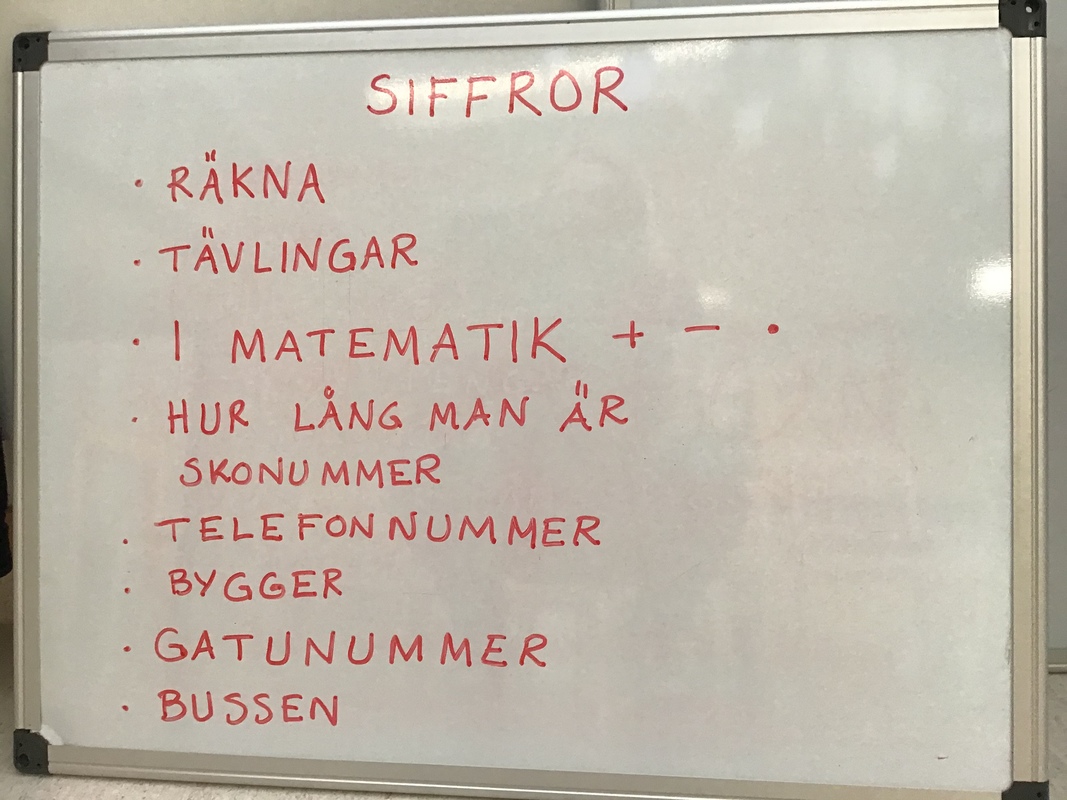 SIFFROR
· RÄKNA
· TÄVLINGAR
· I MATEMATIK + − ·
· HUR LÅNG MAN ÄR
SKONUMMER
· TELEFONNUMMER
· BYGGER
· GATUNUMMER
· BUSSEN